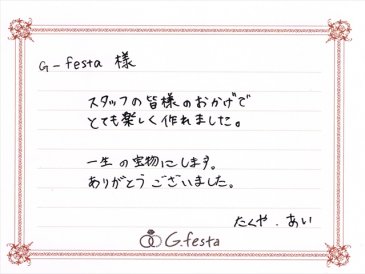 G-festa 様
スタッフの皆様のおかげで
とても楽しく作れました。
一生の宝物にします。
ありがとうございました。
たくや.あい
G.festa